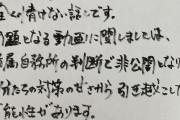 全く情けない話です。
問題となる動画に関しましては、
属自務所の判断で非公開しなり
分たちの対策のせさから引き越こした
能性があります。